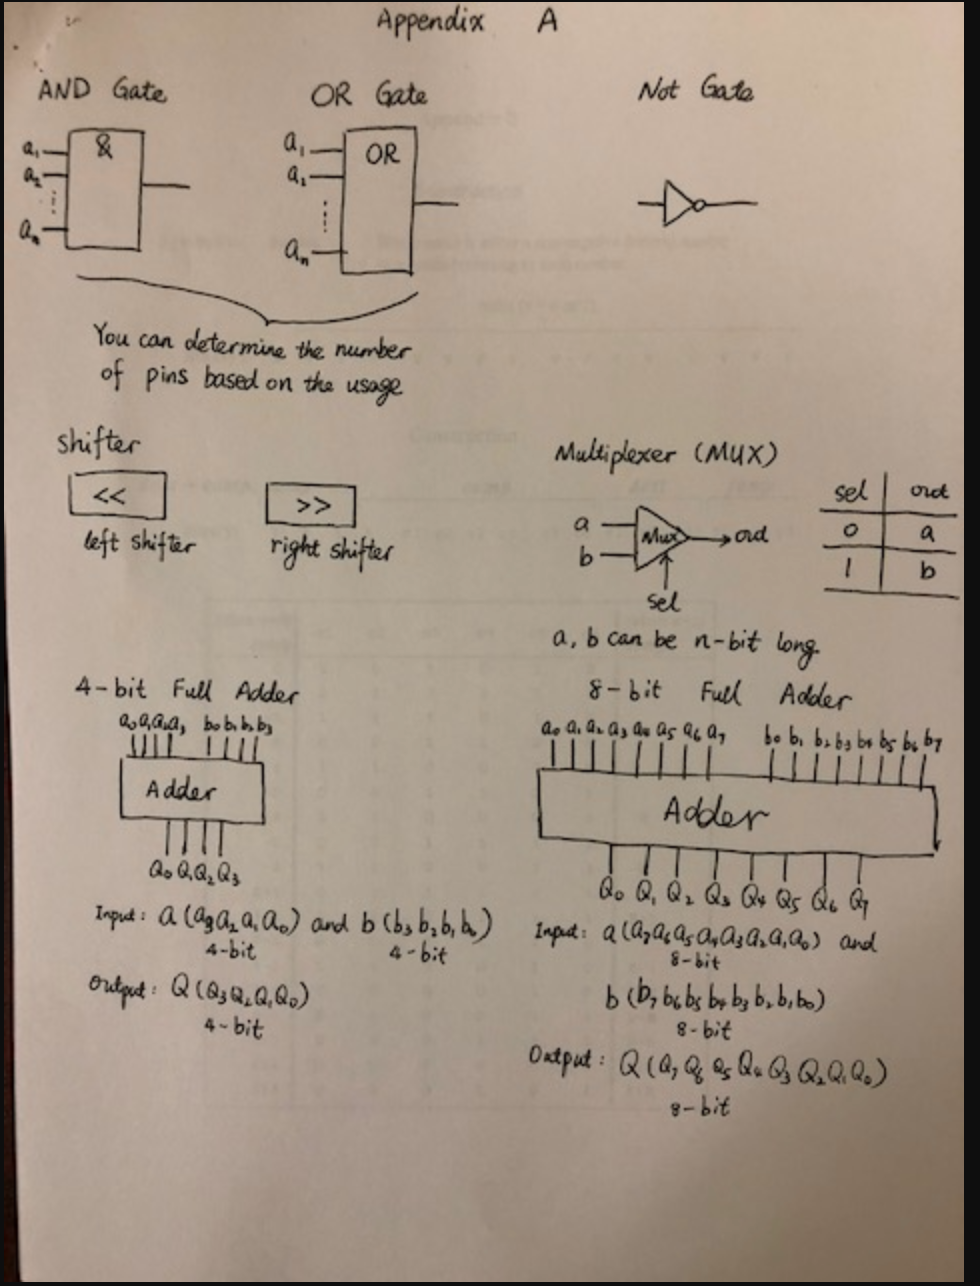 Appendix A
AND Gate
OR Gate
Not Gate
a₁
a₂
aₙ
&
a₁
a₂
aₙ
OR
You can determine the number
of pins based on the usage
Shifter
<<
left shifter
>>
right shifter
Multiplexer (MUX)
a
b
Mux
out
sel
sel out
0 a
1 b
a, b can be n-bit long.
4-bit Full Adder
a₀ a₁ a₂ a₃ b₀ b₁ b₂ b₃
Adder
Q₀ Q₁ Q₂ Q₃
Input: a (a₃ a₂ a₁ a₀) and b (b₃ b₂ b₁ b₀)
4-bit 4-bit
Output: Q (Q₃ Q₂ Q₁ Q₀)
4-bit
8-bit Full Adder
a₀ a₁ a₂ a₃ a₄ a₅ a₆ a₇ b₀ b₁ b₂ b₃ b₄ b₅ b₆ b₇
Adder
Q₀ Q₁ Q₂ Q₃ Q₄ Q₅ Q₆ Q₇
Input: a (a₇ a₆ a₅ a₄ a₃ a₂ a₁ a₀) and
8-bit
b (b₇ b₆ b₅ b₄ b₃ b₂ b₁ b₀)
8-bit
Output: Q (Q₇ Q₆ Q₅ Q₄ Q₃ Q₂ Q₁ Q₀)
8-bit